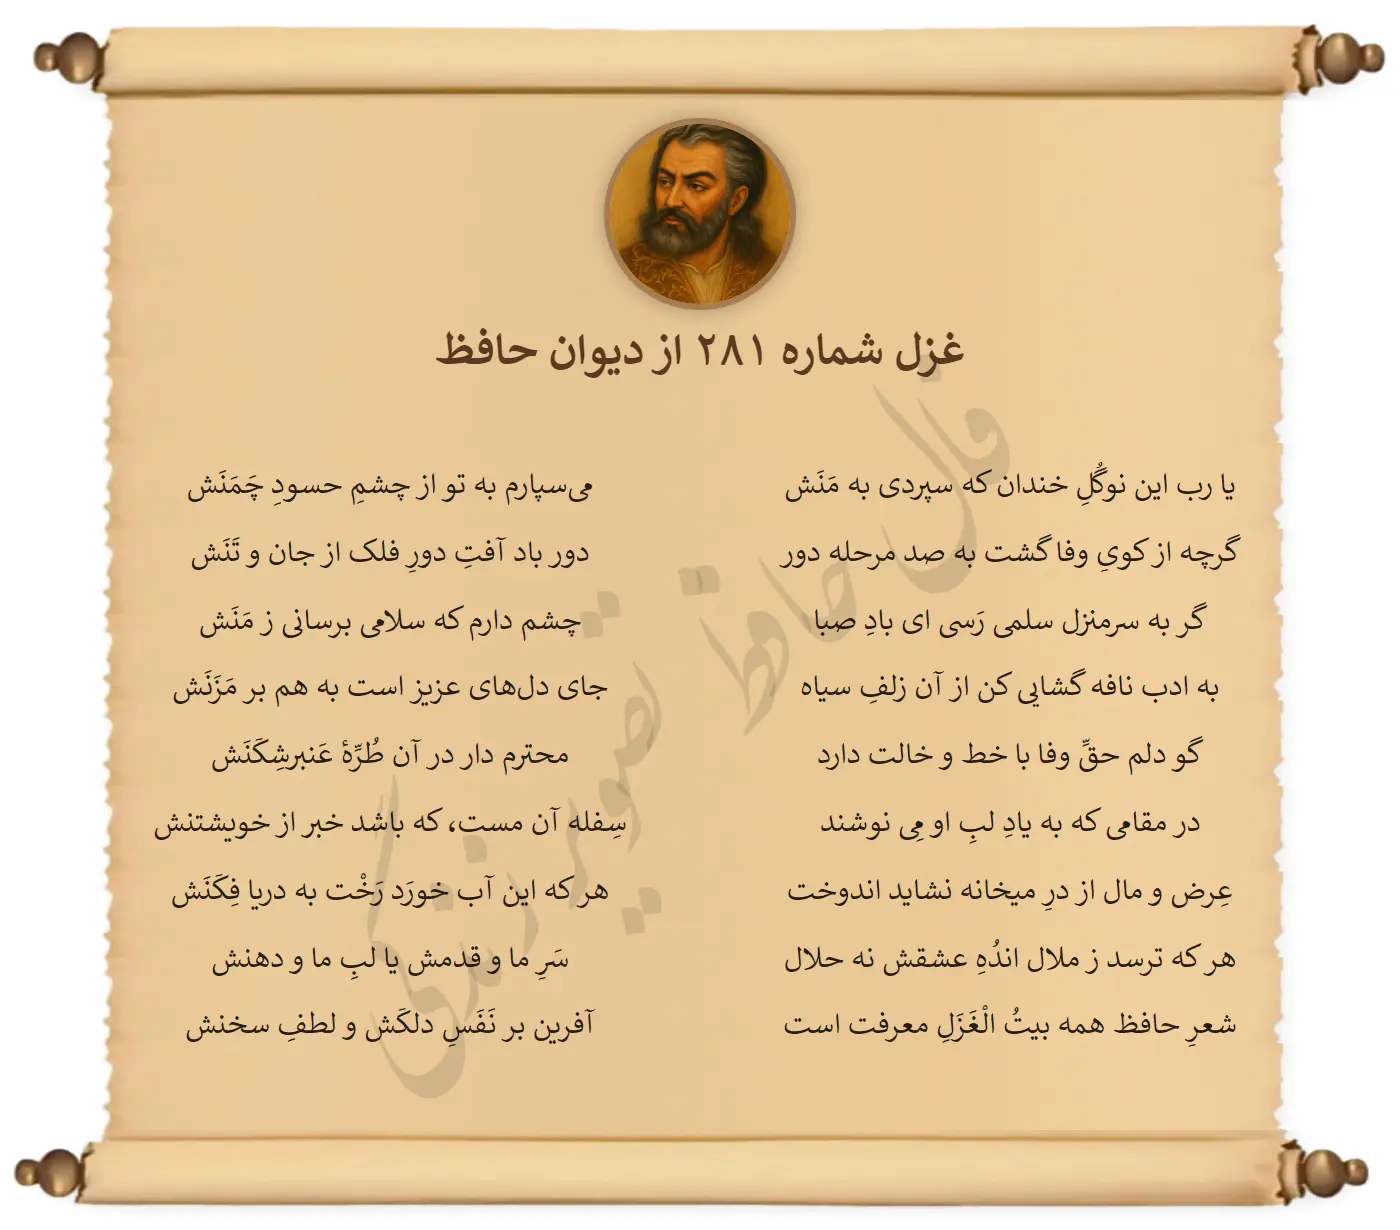 غزل شماره ۲۸۱ از دیوان حافظ
یا رب این نوگُلِ خندان که سپردی به مَنَش می‌سپارم به تو از چشمِ حسودِ چَمَنَش
گرچه از کویِ وفا گشت به صد مرحله دور دور باد آفتِ دورِ فلک از جان و تَنَش
گر به سرمنزل سلمی رَسی ای بادِ صبا چشم دارم که سلامی برسانی ز مَنَش
به ادب نافه گشایی کن از آن زلفِ سیاه جای دل‌های عزیز است به هم بر مَزَنَش
گو دلم حقِّ وفا با خط و خالت دارد محترم دار در آن طُرِّهٔ عَنبرشِکَنَش
در مقامی که به یادِ لبِ او مِی نوشند سِفله آن مست، که باشد خبر از خویشتنش
عِرض و مال از درِ میخانه نشاید اندوخت هر که این آب خورَد رَخْت به دریا فِکَنَش
هر که ترسد ز ملال اندُهِ عشقش نه حلال سَرِ ما و قدمش یا لبِ ما و دهنش
شعرِ حافظ همه بیتُ الْغَزَلِ معرفت است آفرین بر نَفَسِ دلکَش و لطفِ سخنش
فال حافظ تصویر زندگی